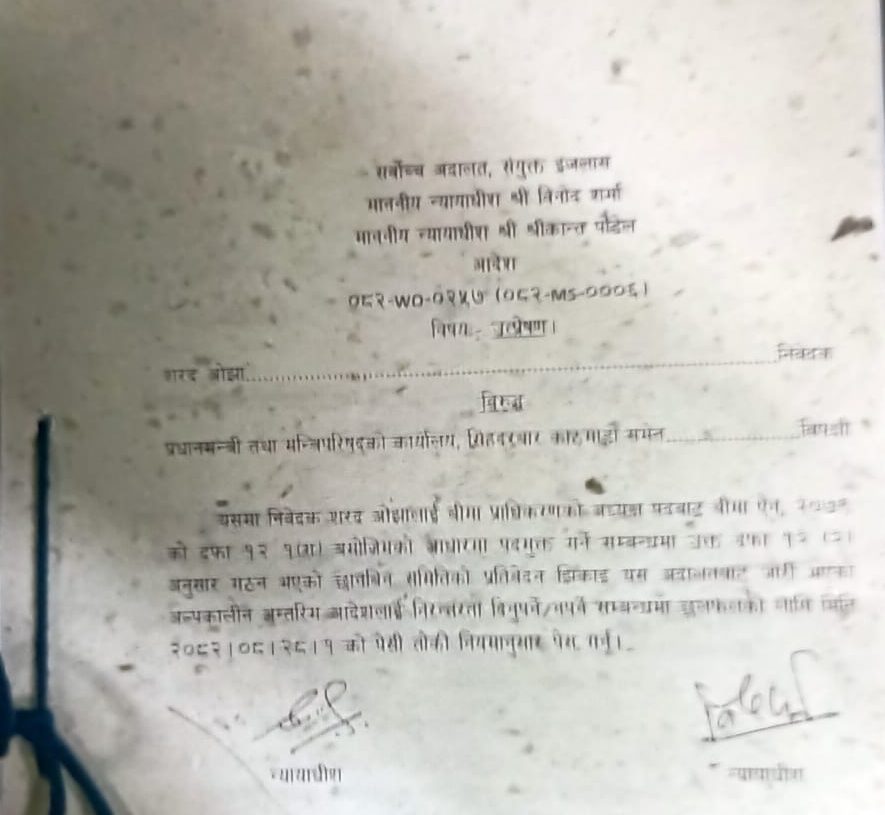 सर्वोच्च अदालत, संयुक्त इजलास
माननीय न्यायाधीश श्री विनोद शर्मा
माननीय न्यायाधीश श्री श्रीकान्त पौडेल
आदेश
०८२-WO-०२५७ (०८२-MS-०००६)
विषय:- उत्प्रेषण।
शरद ओझा........................................................................निवेदक
विरुद्ध
प्रधानमन्त्री तथा मन्त्रिपरिषद्को कार्यालय, सिंहदरबार काठमाडौँ समेत..................विपक्षी
यसमा निवेदक शरद ओझालाई बीमा प्राधिकरणको अध्यक्ष पदबाट बीमा ऐन, २०७९
को दफा १२ १(ग) बमोजिमको आधारमा पदमुक्त गर्ने सम्बन्धमा उक्त दफा १२ (२)
अनुसार गठन भएको छानविन समितिको प्रतिवेदन झिकाइ यस अदालतबाट जारी भएको
अल्पकालीन अन्तरिम आदेशलाई निरन्तरता दिनुपर्ने/नपर्ने सम्बन्धमा छलफलको लागि मिति
२०८२।०८।२८।१ को पेसी तोकी नियमानुसार पेस गर्नू।
न्यायाधीश
न्यायाधीश